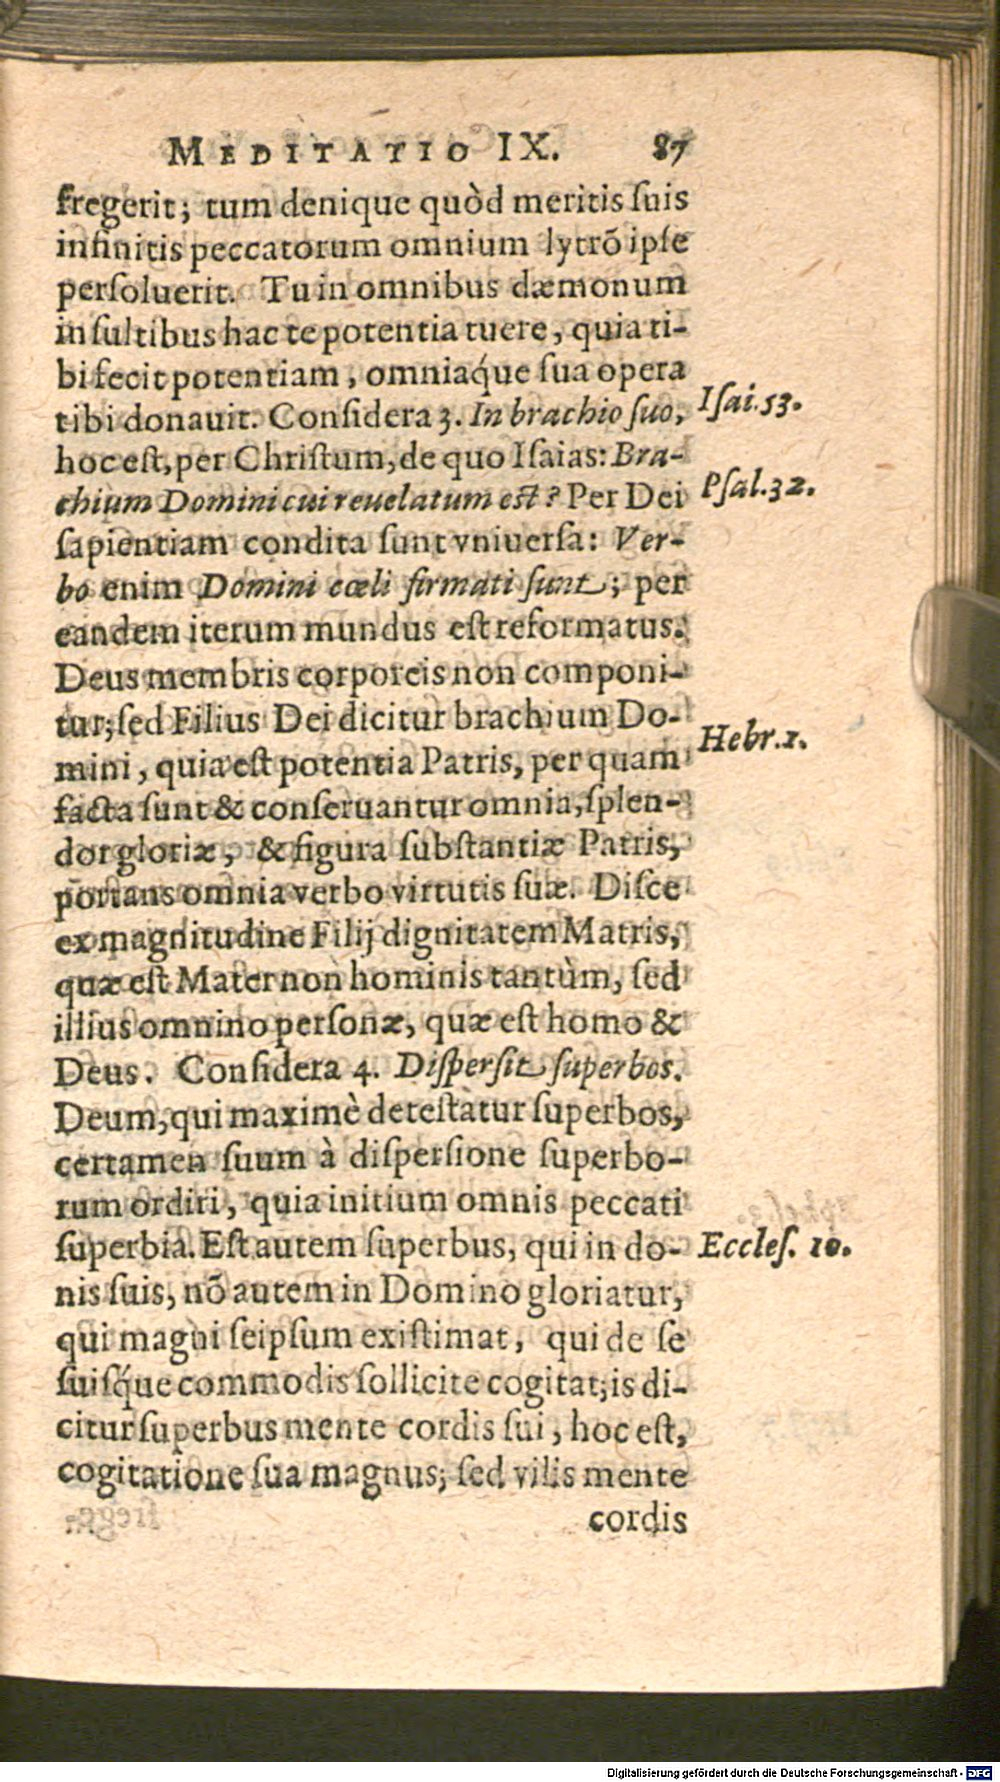 MEDITATIO IX. 87
fregerit; tum denique quòd meritis ſuis
infinitis peccatorum omnium lytrõ ipſe
perſoluerit. Tu in omnibus dæmonum
inſultibus hac te potentia tuere, quia ti-
bi fecit potentiam, omniaq́ue ſua opera
tibi donauit. Conſidera 3. In brachio ſuo,
Iſai. 53.
hoc eſt, per Chriſtum, de quo Iſaias: Bra-
chium Domini cui reuelatum eſt? Per Dei
Pſal. 32.
ſapientiam condita ſunt vniuerſa: Ver-
bo enim Domini cœli firmati ſunt; per
eandem iterum mundus eſt reformatus.
Deus membris corporeis non componi-
tur; ſed Filius Dei dicitur brachium Do-
mini, quia eſt potentia Patris, per quam
Hebr. 1.
facta ſunt & conſeruantur omnia, ſplen-
dor gloriæ, & figura ſubſtantiæ Patris,
portans omnia verbo virtutis ſuæ. Diſce
ex magnitudine Filij dignitatem Matris,
quæ eſt Mater non hominis tantùm, ſed
illius omnino perſonæ, quæ eſt homo &
Deus. Conſidera 4. Diſperſit ſuperbos.
Deum, qui maximè deteſtatur ſuperbos,
certamen ſuum à diſperſione ſuperbo-
rum ordiri, quia initium omnis peccati
ſuperbia. Eſt autem ſuperbus, qui in do-
Eccleſ. 10.
nis ſuis, nõ autem in Domino gloriatur,
qui magni ſeipſum exiſtimat, qui de ſe
ſuiſq́ue commodis ſollicite cogitat; is di-
citur ſuperbus mente cordis ſui, hoc eſt,
cogitatione ſua magnus; ſed vilis mente
cordis
Digitalisierung gefördert durch die Deutsche Forschungsgemeinschaft - DFG